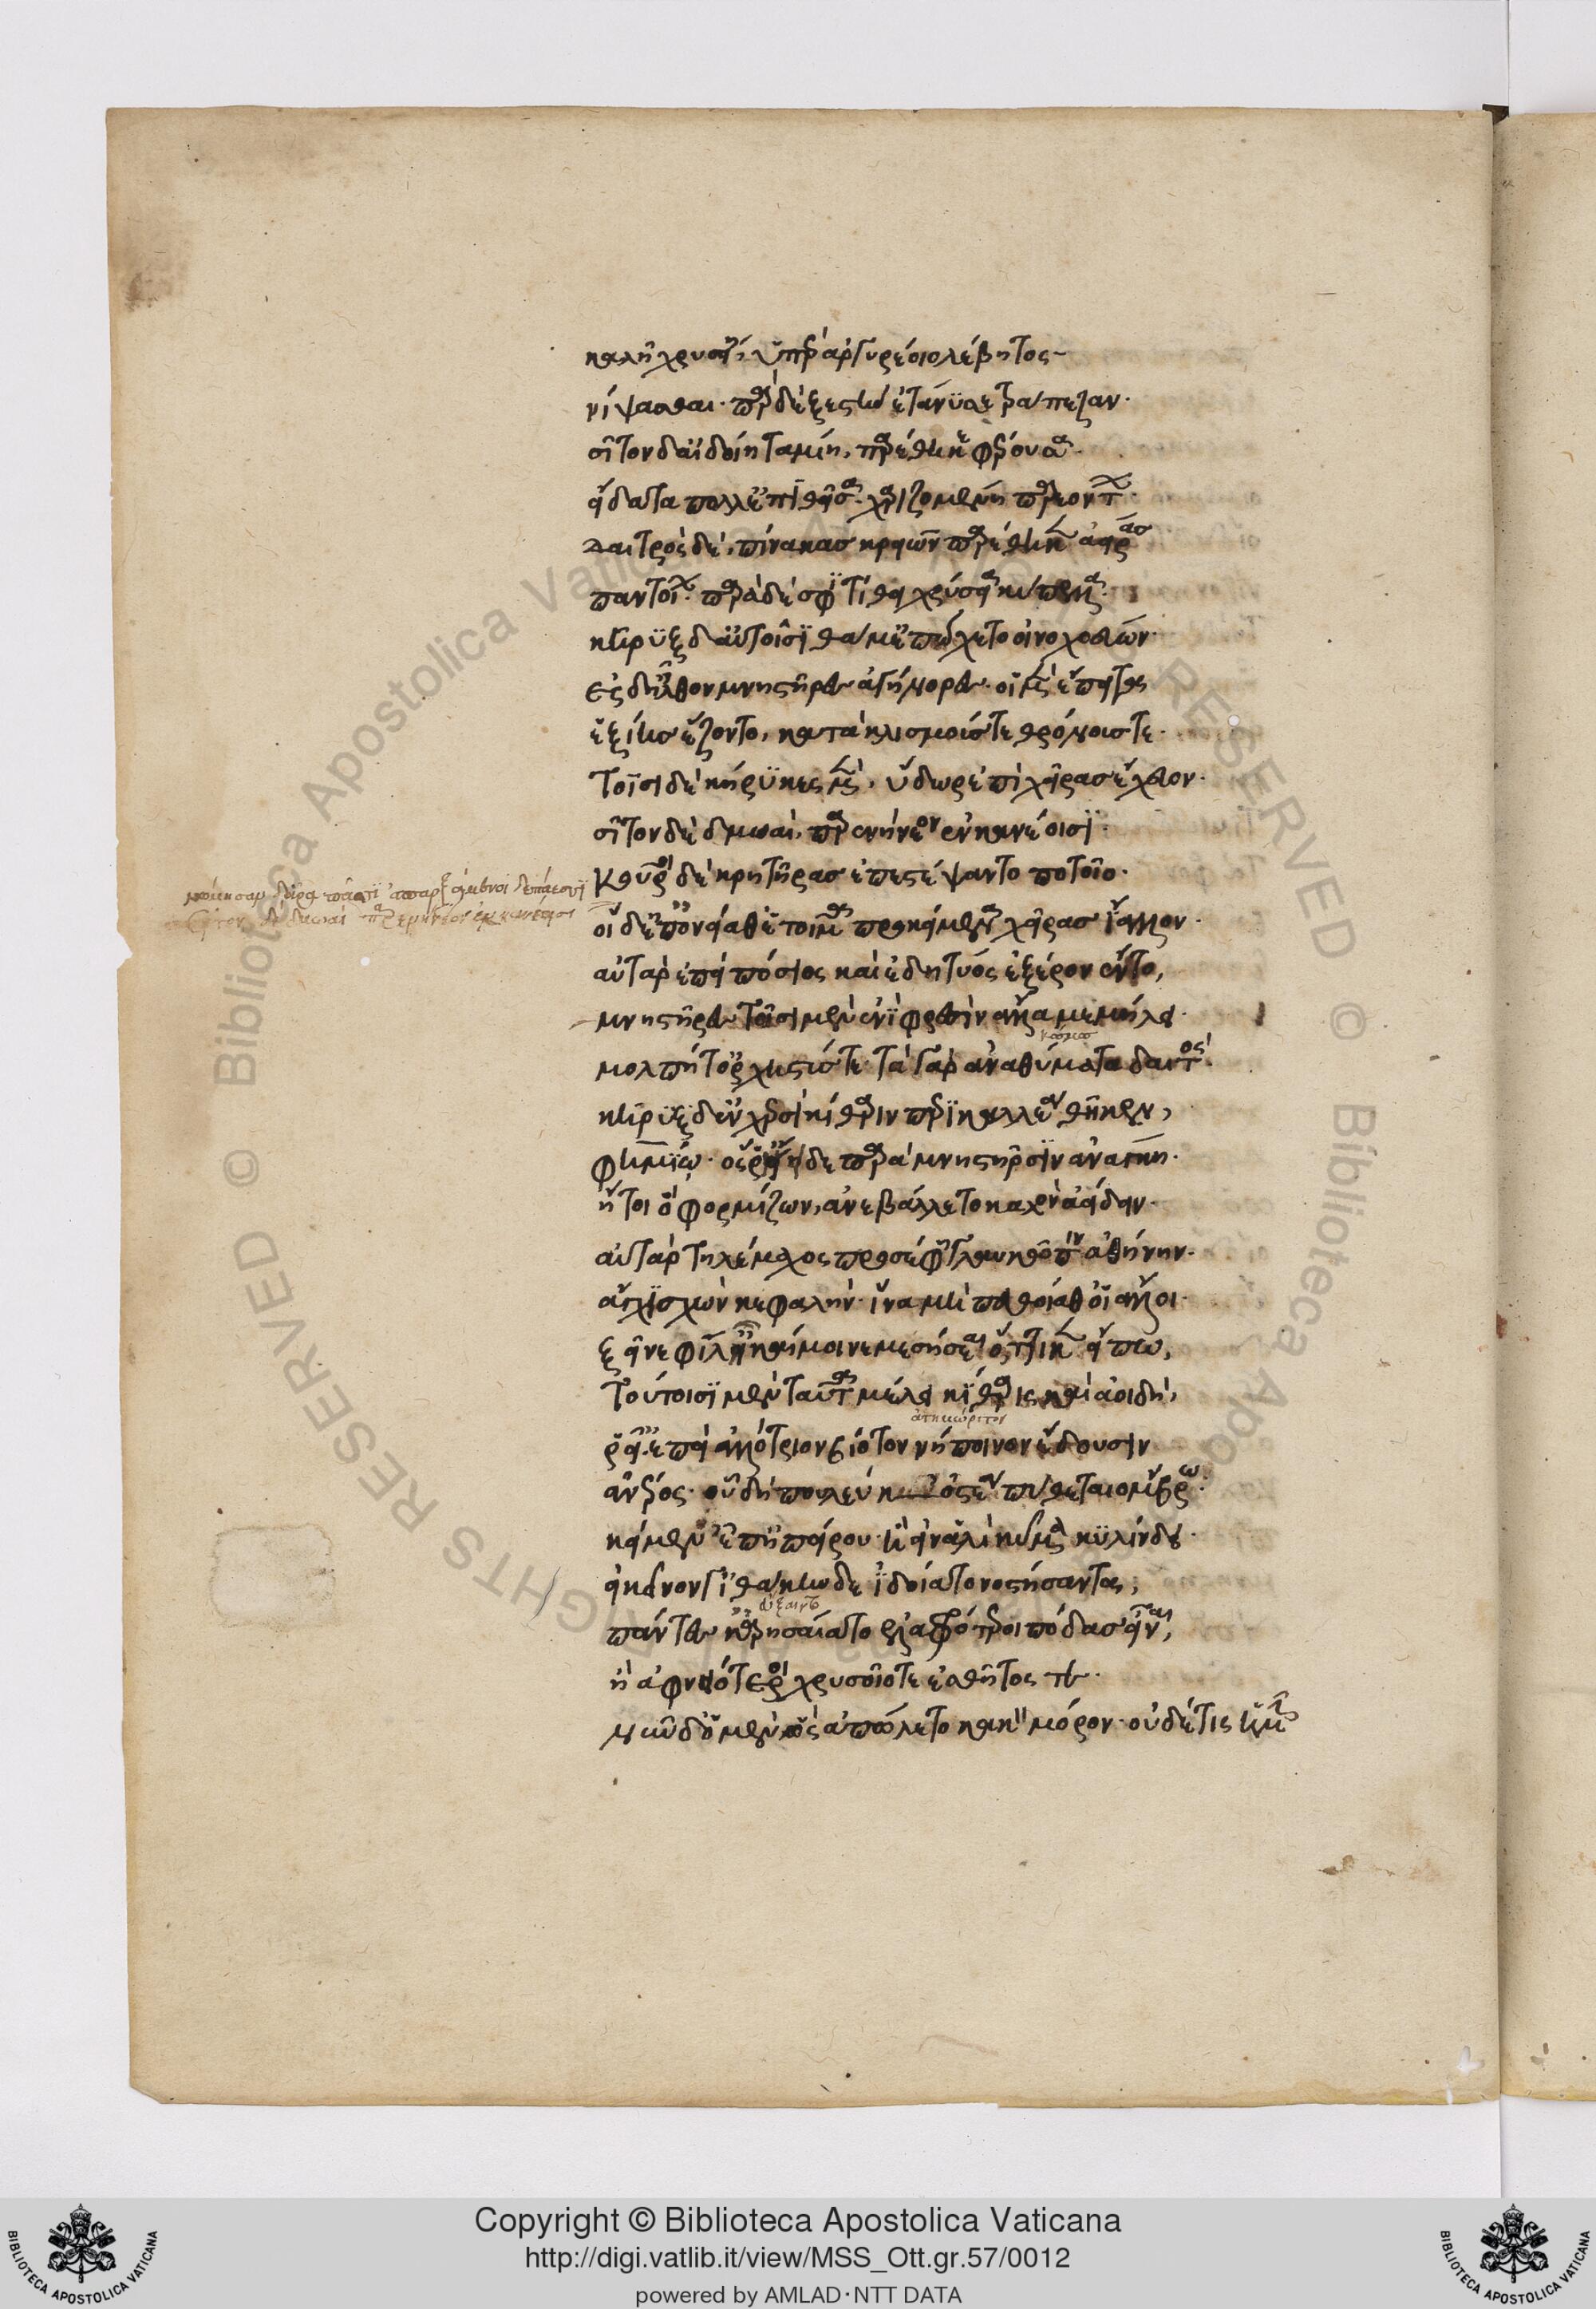 καλῆ χρυσείη, ὑπὲρ ἀργυρέοιο λέβητος
νίψασθαι· παρὰ δὲ ξεστὴν ἐτάνυσε τράπεζαν·
σῖτον δ' αἰδοίη ταμίη, παρέθηκε φέρουσα·
εἴδατα πόλλ' ἐπιθεῖσα· χαριζομένη παρεόντων·
δαιτρὸς δὲ, πίνακας κρειῶν παρέθηκεν ἀείρας
παντοίων· παρὰ δέ σφι τίθει χρύσεια κύπελλα·
κήρυξ δ' αὐτοῖσι θάμ' ἐπώχετο οἰνοχοεύων·
ἐς δ' ἦλθον μνηστῆρες ἀγήνορες· οἱ μὲν ἔπειτα
ἑξείης ἕζοντο, κατὰ κλισμούς τε θρόνους τε·
τοῖσι δὲ κήρυκες μὲν, ὕδωρ ἐπὶ χεῖρας ἔχευον·
σῖτον δὲ δμωαὶ, παρενήνεον ἐν κανέοισι·
κοῦροι δὲ κρητῆρας ἐπεστέψαντο ποτοῖο·
νώμησαν δ' ἄρα πᾶσι ἐπαρξάμενοι δεπάεσσι
σῖτον δὲ δμωαὶ παρενήνεον ἐν κανέοισι
οἱ δ' ἐπ' ὀνείαθ' ἑτοῖμα προκείμενα χεῖρας ἴαλλον·
αὐτὰρ ἐπεὶ πόσιος καὶ ἐδητύος ἐξέρον ἕντο,
μνηστῆρες τοῖσι μὲν ἐνὶ φρεσὶν ἄλλα μεμήλει·
κόσμος
μολπή τ' ὀρχηστύς τε· τὰ γὰρ ἀναθήματα δαιτός·
κήρυξ δ' ἐν χερσὶ κίθαριν περικαλλέα θῆκεν,
φημίῳ· ὅς ῥ' ἤειδε παρὰ μνηστῆρσιν ἀνάγκη·
ἤτοι ὁ φορμίζων, ἀνεβάλλετο καλὸν ἀείδειν·
αὐτὰρ τηλέμαχος προσέφη γλαυκῶπιν ἀθήνην·
ἄγχι σχὼν κεφαλήν· ἵνα μὴ πευθοίαθ' οἱ ἄλλοι·
ξεῖνε φίλ' ἦ καί μοι νεμεσήσεαι ὅττι κεν εἴπω,
τούτοισι μὲν ταῦτα μέλει κίθαρις καὶ ἀοιδὴ,
ἀτιμώρητον
ῥεῖ'· ἐπεὶ ἀλλότριον βίοτον νήποινον ἔδουσιν
ἀνδρός· οὗ δή που λεύκ' ὀστέα πύθεται ὄμβρω·
κείμεν' ἐπ' ἠπείρου· ἢ εἰν ἁλὶ κῦμα κυλίνδει·
εἰ κεῖνόν γ' ἰθάκηνδε ἰδοίατο νοστήσαντα,
εὔξαιντο
πάντες κ' ἀρησαίατο ἐλαφρότεροι πόδας εἶναι,
ἢ ἀφνειότεροι χρυσοῖό τε ἐσθῆτός τε·
νῦν δ' ὁ μὲν ὣς ἀπόλετο κακὸν μόρον· οὐδέ τις ἧμιν
Copyright © Biblioteca Apostolica Vaticana
http://digi.vatlib.it/view/MSS_Ott.gr.57/0012
powered by AMLAD·NTT DATA